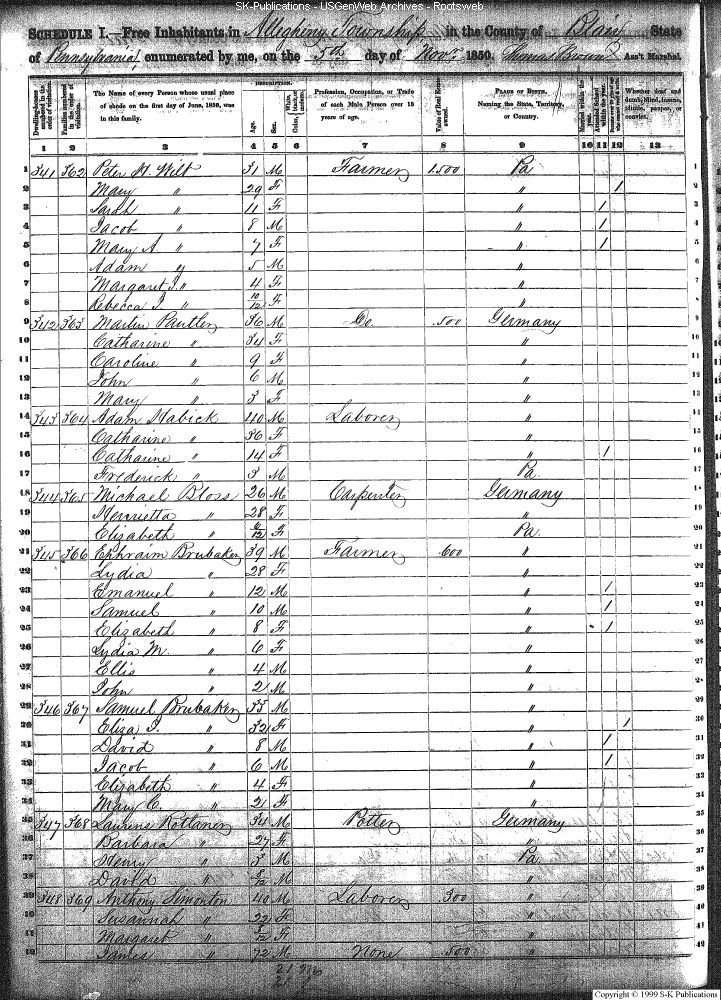 SK-Publications - USGenWeb Archives - Rootsweb
SCHEDULE I.—Free Inhabitants in Allegheny Township in the County of Blair State
of Pennsylvania, enumerated by me, on the 5th day of Novr 1850. Thomas Brown Ass't Marshal.
Dwelling-houses numbered in the order of visitation. Families numbered in the order of visitation. The Name of every Person whose usual place of abode on the first day of June, 1850, was in this family. DESCRIPTION. Age. Sex. Color, White, black, or mulatto. Profession, Occupation, or Trade of each Male Person over 15 years of age. Value of Real Estate owned. PLACE OF BIRTH. Naming the State, Territory, or Country. Married within the year. Attended School within the year. Whether deaf and dumb, blind, insane, idiotic, pauper, or convict.
1 2 3 4 5 6 7 8 9 10 11 12 13
1 341 362 Peter H. Wilt 31 M Farmer 1.500 Pa 1
2 Mary " 29 F " / 2
3 Sarah " 11 F " / 3
4 Jacob " 8 M " / 4
5 Mary A. " 7 F " / 5
6 Adam " 5 M " 6
7 Margaret J. " 4 F " 7
8 Rebecca J. " 10/12 F " 8
9 342 363 Martin Pautler 36 M Do. .500 Germany 9
10 Catharine " 34 F " 10
11 Caroline " 9 F " 11
12 John " 6 M " 12
13 Mary " 3 F " 13
14 343 364 Adam 40 M Laborer " 14
15 Catharine " 36 F " 15
16 Catharine " 14 F " / 16
17 Frederick " 3 M Pa. 17
18 344 365 Michael Bloss 26 M Carpenter Germany 18
19 Henrietta " 28 F " 19
20 Elizabeth " 6/12 F Pa. 20
21 345 366 Ephraim Brubaker 39 M Farmer .600 " 21
22 Lydia " 28 F " 22
23 Emanuel " 12 M " / 23
24 Samuel " 10 M " / 24
25 Elizabeth " 8 F " / 25
26 Lydia M. " 6 F " 26
27 Ellis " 4 M " 27
28 John " 2 M " 28
29 346 367 Samuel Brubaker 33 M " 29
30 Eliza J. " 32 F " / 30
31 David " 8 M " / 31
32 Jacob " 6 M " / 32
33 Elizabeth " 4 F " 33
34 Mary C. " 2 F " 34
35 347 368 Laurens 34 M Potter Germany 35
36 Barbara " 27 F " 36
37 Henry " 3 M Pa 37
38 David " M " 38
39 348 369 Anthony Simonton 40 M Laborer 300 " 39
40 Susannah " 22 F " 40
41 Margaret " F " 41
42 James " 72 M None .500 " 42
Copyright © 1999 S-K Publications